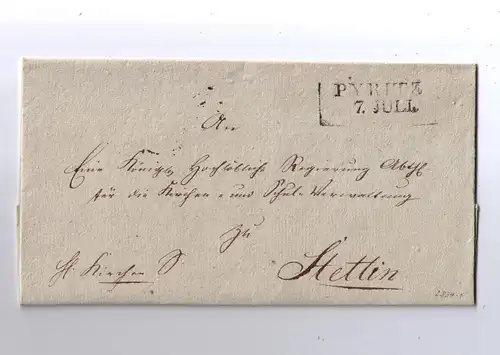 PYRITZ
7. JULI.
An
Eine Königl. Hochlöbliche Regierung Abthl
für die Kirchen= und Schul=Verwaltung
zu
Stettin
H. Kirchen S.